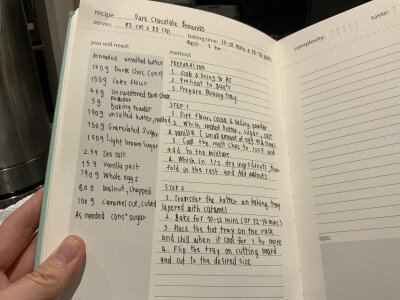 recipe Dark Chocolate Brownies
serves: 23 cm x 33 cm
baking time: 10-12 mins + 12-14 mins
Rest 1 hr
you will need:
As needed unsalted butter
170g Dark choc (64%)
150g Cake flour
45g Unsweetened dark choc powder
5g Baking powder
190g unsalted butter, melted
150g Granulated sugar
150g Light brown sugar
2.5g Sea salt
15g Vanilla past
190g Whole eggs
80g Walnut, chopped
100g Caramel cut, cubed
As needed cons' sugar
method:
PREPARATION
1. Grab & bring to
2. Preheat to
3. Prepare Baking tray
STEP 1
1. Sift flour, cocoa & baking powder
2. Whick melted butter, sugar, salt
& vanilla (small amount at
3. Cool the melt choc to
add to the mixture
4. Whick in 1/3 dry ingredients, then
fold in the rest and Add walnuts
STEP 2
1. Transfer the batter on baking tray
layered with caramel
2. Bake for 10-12 mins (or 12-14 mins)
3. Place the hot tray on the rack
and chill when it cool for 1 hr more
4. Flip the tray on cutting board
and cut to the desired size
complexity:
taste:
tips: